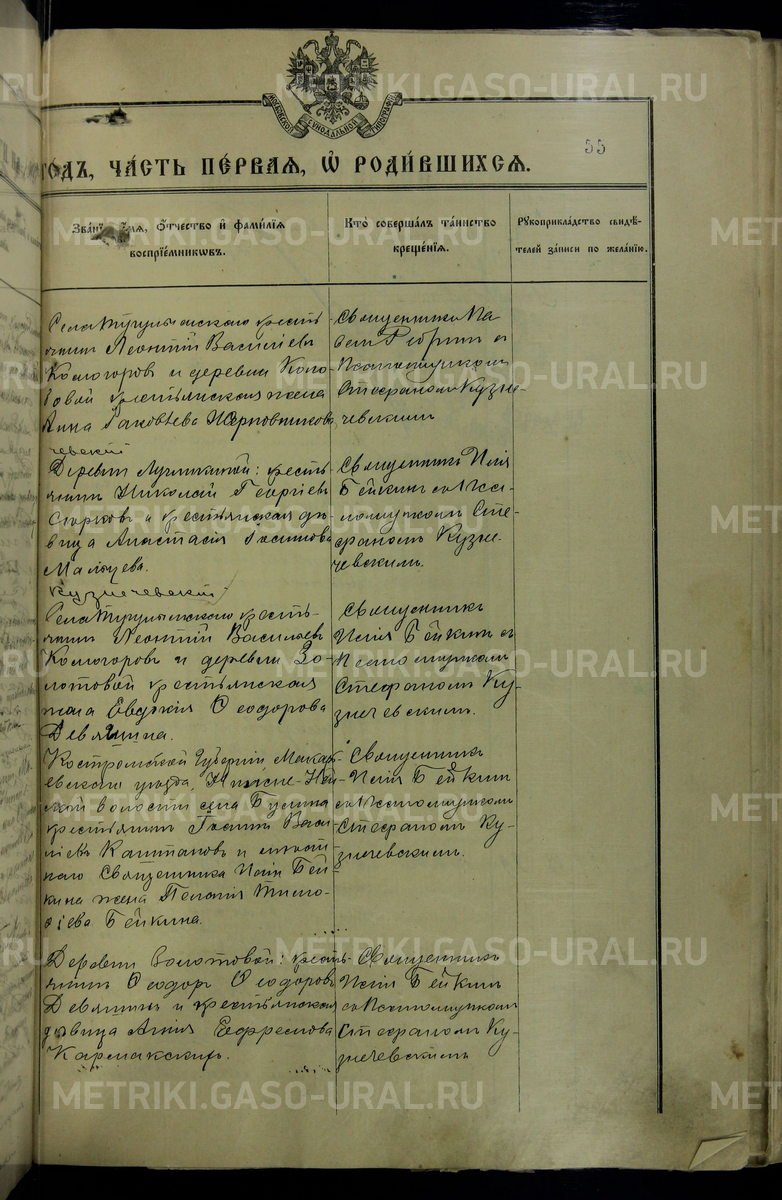 МОСКОВСКОЙ СѴНОДАЛЬНОЙ ТИПОГРАФІИ
55
ГОДЪ, ЧА́СТЬ ПЕ́РВАЯ, Ѡ РОДИ́ВШИХСЯ.
Зва́нїе, и́мя, ѻ҆́тчество и҆ фами́лїя
воспрїе́мникѡвъ.
Кто̀ соверша́лъ та́инство
креще́нїя.
Рꙋкоприкла́дство свидѣ́-
телей за́писи по жела́нїю.
Села Тугулымскаго кресть-
янинъ Леонтій Васильевъ
Кологоровъ и деревни
крестьянская жена
Анна Яковлева
Священникъ
Псаломщикомъ
Стефаномъ Кузне-
чевскимъ
чевскій
Деревни кресть-
янинъ Николай Георгіевъ
и крестьянская дѣ-
вица Анастасія
Мальцева.
Священникъ Илія
Бейкинъ съ Пса-
ломщикомъ Сте-
фаномъ Кузне-
чевскимъ.
Кузнечевскій
Села Тугулымскаго кресть-
янинъ Леонтій Васильевъ
Кологоровъ и деревни Зо-
лотовой крестьянская
жена Евдокія Ѳеодорова
Девятина.
Священникъ
Илія Бейкинъ съ
Псаломщикомъ
Стефаномъ Ку-
знечевскимъ.
Костромской Губерніи Макарь-
евскаго уѣзда,
волости села
крестьянинъ Васи-
льевъ Каштановъ и
Священника Иліи Бей-
кина жена Пелагія Тимо-
ѳіева Бейкина.
Священникъ
Илія Бейкинъ
съ Псаломщикомъ
Стефаномъ Ку-
знечевскимъ.
Деревни Золотовой: кресть-
янинъ Ѳеодоръ Ѳеодоровъ
Девятинъ и крестьянская
дѣвица Агнія Ефремова
Кармакскихъ.
Священникъ
Илія Бейкинъ
съ Псаломщикомъ
Стефаномъ Ку-
знечевскимъ
METRIKI.GASO-URAL.RU